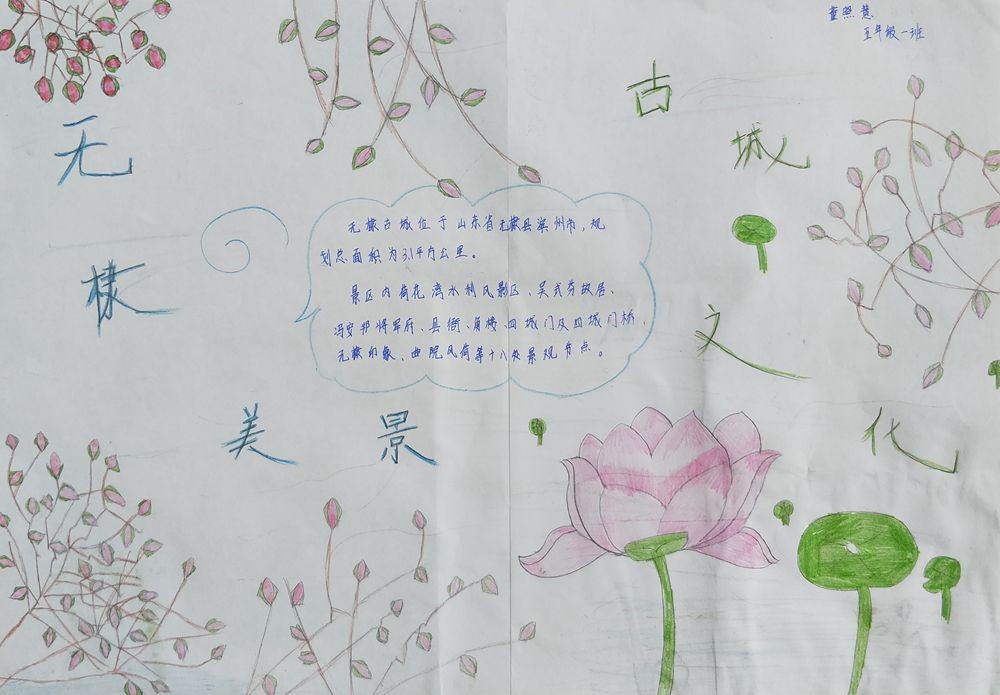 董照慧
五年级一班
无棣美景
古城文化
无棣古城位于山东省无棣县滨州市,规
划总面积为3.1平方公里。
景区内荷花湾水利风景区、吴式芬故居、
冯安邦将军府、县衙、角楼、四城门及四城门桥、
无棣印象、曲院风荷等十八处景观节点。